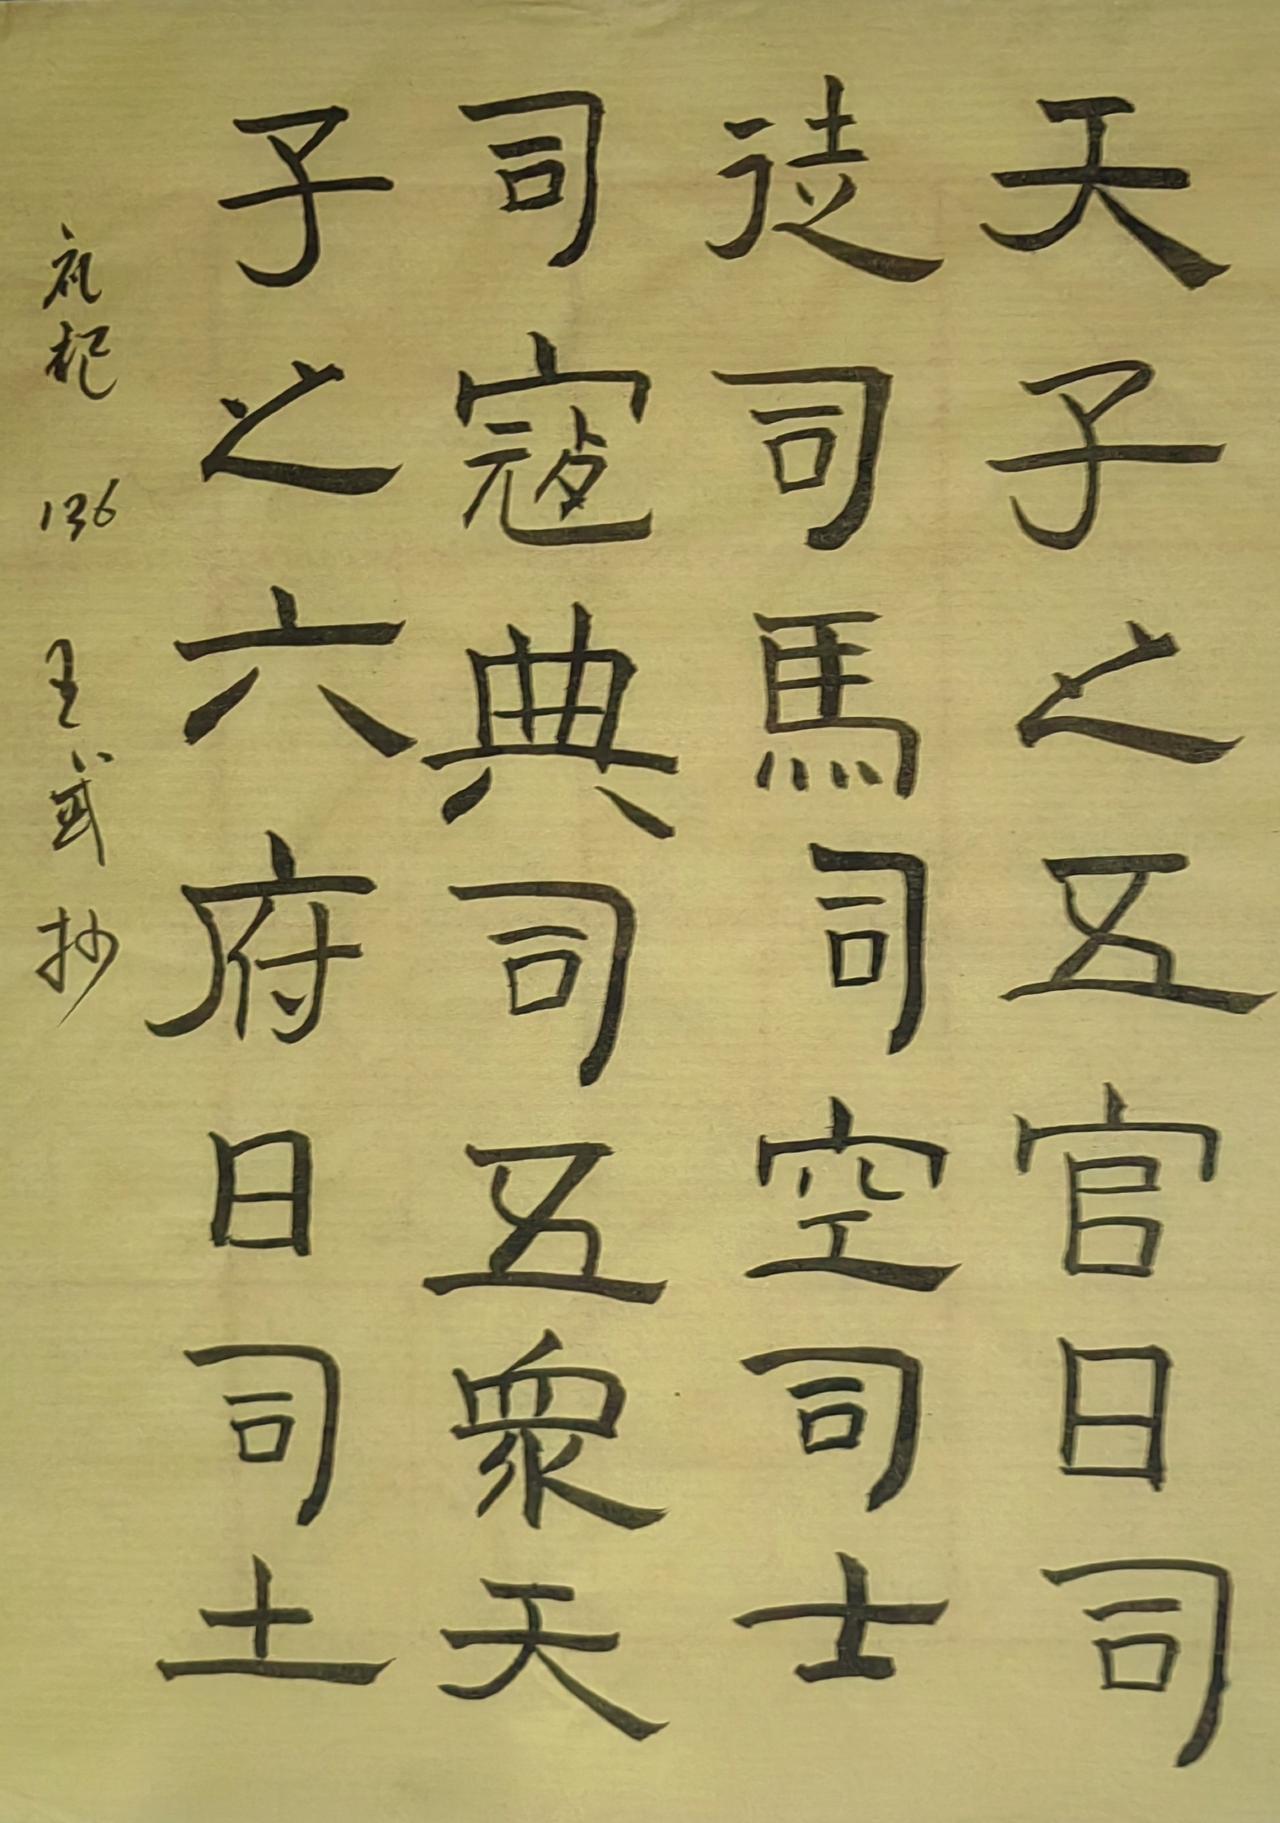 天子之五官日司
徒司馬司空司士
司寇典司五眾天
子之六府日司土
礼杞 136 王武抄